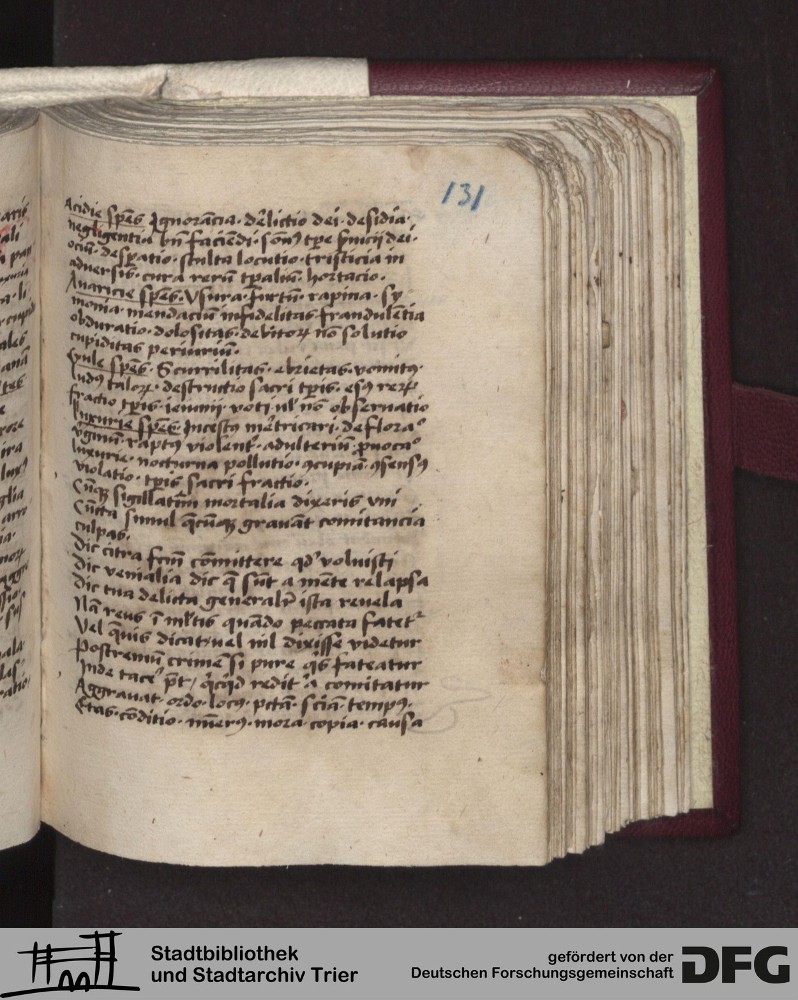 131
Acidie sp̄es Ignorācia · d'elictio dei · desidia ·
negligentia bn̄ faciēdi · sōn9 tp̄e s̄uicij dei ·
ociū · desp̱atio · stulta locutio · tristicia in
adversis · cura rerū tp̱aliū · hortacio ·
Auaricie sp̄es · Vsura · Furtū · rapina · sy
monia · mendaciū · infidelitas · fraudulētia
obduratio · dolositas · debitoꝝ nō solutio
cupiditas periuriū ·
Gule sp̄es · Scurrilitas · ebrietas · vomit9 ·
lud9 taloꝝ · destructio sacri tp̱is · es9 rerꝝ
fractio tp̱is · ieiunij · voti ul' nō obseruatio
luxurie sp̄es · Incest9 · m̄etricari · deflora°
v̄ginū · rapt9 violent' · adulteriū · ꝓuoca°
luxurie · nocturna pollutio · ꝯcupiā · ꝯsens9
violatio · tp̱is sacri fractio ·
Cūqꝫ sigillatim mortalia dixeris vni
Cūcta simul q̄cūqꝫ grauāt comitancia
culpas ·
Dic citra fcm̄ cōmittere qd' voluisti
Dic venialia dic q̄ sūt a mēte relapsa
Dic tua delicta generalr̄ ista reuela
Nā reus ī ml'tis quādo peccata fatet᷑
Vel q̄uis dicat · uel nil dixisse videtur
Postremū crimē si pure q̇s fateatur
Inde tacē p̄t / q̇cq̇d redit a comitatur
Aggrauat · ordo · loc9 · pctā · sciā · temp9 ·
Etas · cōditio · nūer9 · mora · copia · causa
Stadtbibliothek
und Stadtarchiv Trier
gefördert von der
Deutschen Forschungsgemeinschaft
DFG